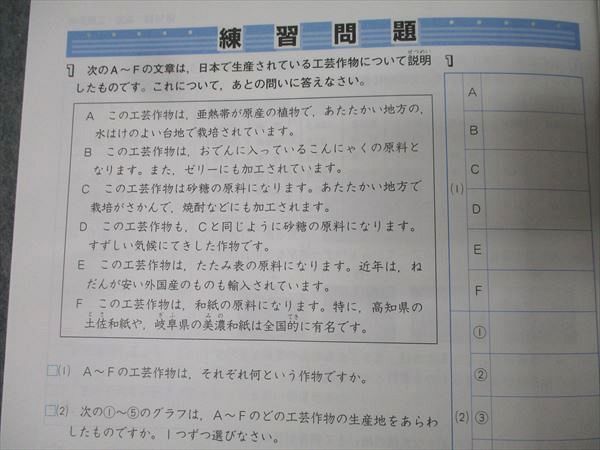 練習問題
1 次のA〜Fの文章は,日本で生産されている工芸作物について説明
せつめい
したものです。これについて,あとの問いに答えなさい。
A この工芸作物は,亜熱帯が原産の植物で,あたたかい地方の,
水はけのよい台地で栽培されています。
B この工芸作物は,おでんに入っているこんにゃくの原料と
なります。また,ゼリーにも加工されています。
C この工芸作物は砂糖の原料になります。あたたかい地方で
栽培がさかんで,焼酎などにも加工されます。
D この工芸作物も,Cと同じように砂糖の原料になります。
すずしい気候にてきした作物です。
E この工芸作物は,たたみ表の原料になります。近年は,ね
だんが安い外国産のものも輸入されています。
F この工芸作物は,和紙の原料になります。特に,高知県の
とさ ぎふ みの てき
土佐和紙や,岐阜県の美濃和紙は全国的に有名です。
□(1) A〜Fの工芸作物は,それぞれ何という作物ですか。
□(2) 次の①〜⑤のグラフは,A〜Fのどの工芸作物の生産地をあらわ
したものですか。1つずつ選びなさい。
1
(1)
A
B
C
D
E
F
(2)
①
②
③